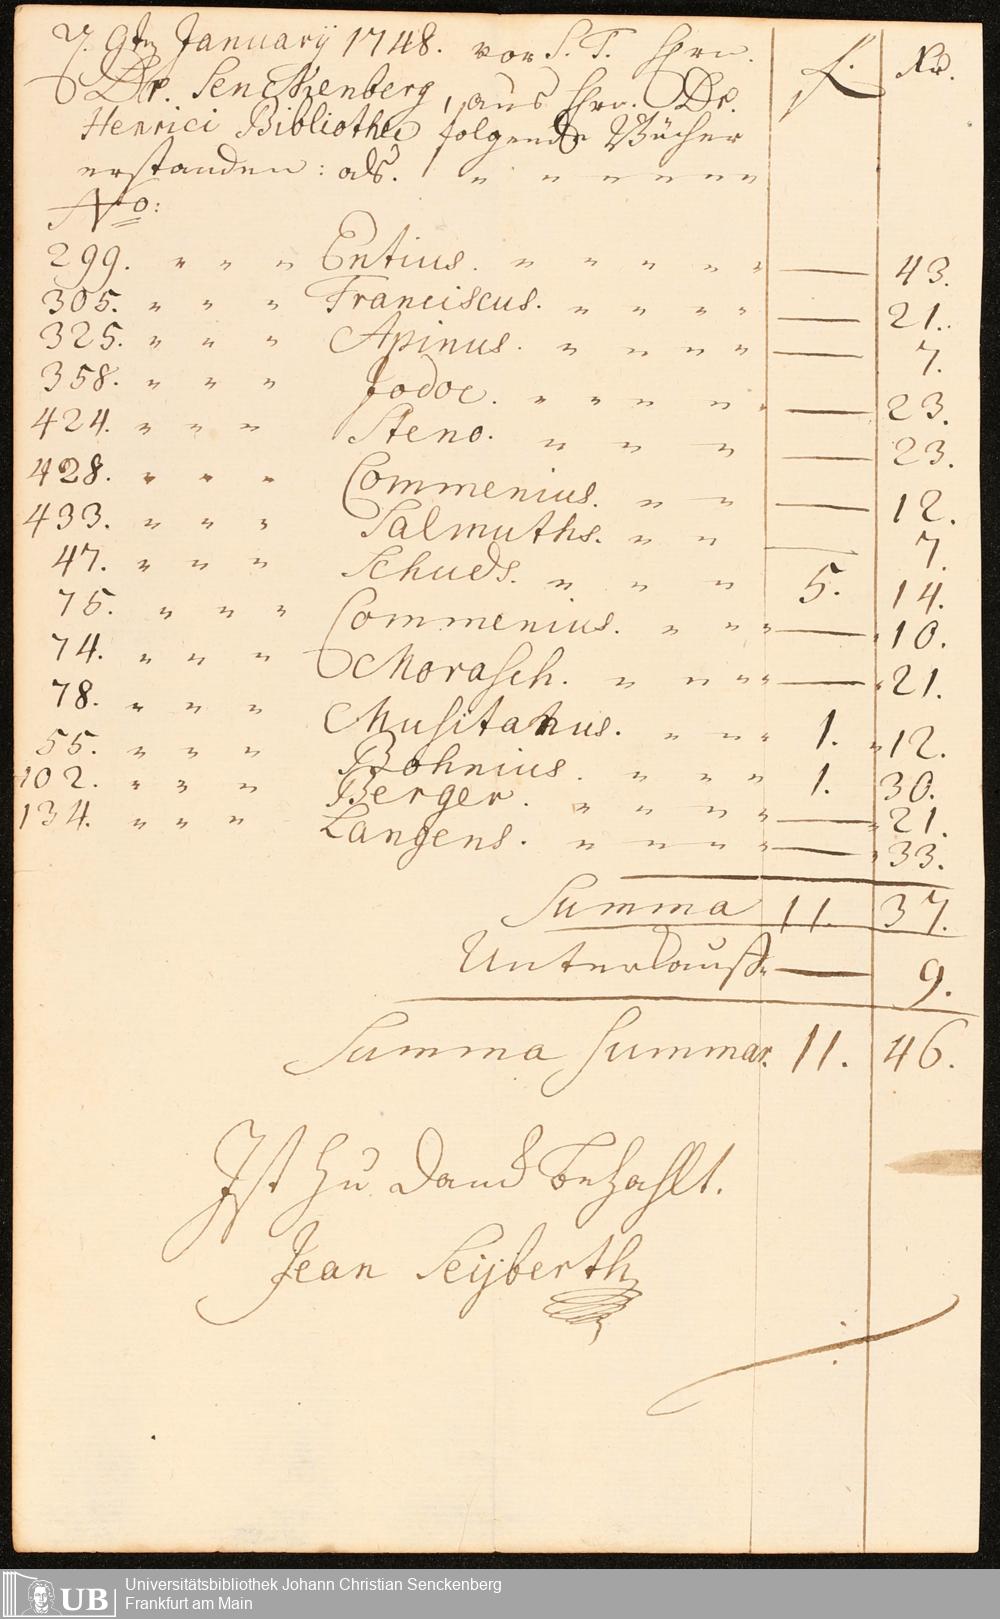 9ten Januarÿ 1748. vor S. T. Hrn. f. Xr.
Dr. Senckenberg, aus Hrn. Dr.
Henrici Bibliothec folgende Bücher
erstanden: als. " " " " " " "
No:
299. " " " Entius. " " " " " — 43.
305. " " " Franciscus. " " " " — 21.
325. " " " Apinus. " " " " — 7.
358. " " " Jodoc. " " " " — 23.
424. " " " Steno. " " " — 23.
428. " " " Commenius. " " — 12.
433. " " " Salmuths. " " — 7.
47. " " " Schuds. " " " 5. 14.
75. " " " Commenius. " " " — 10.
74. " " " Morasch. " " " " — 21.
78. " " " Musitanus. " " " 1. 12.
55. " " " Bohnius. " " " " 1. 30.
102. " " " Berger. " " " " " — 21.
134. " " " Langens. " " " " — 33.
Summa 11. 37.
Unterkauff — 9.
Summa Summar. 11. 46.
Ist zu Danck bezahlt.
Jean Seÿberth
UB Universitätsbibliothek Johann Christian Senckenberg
Frankfurt am Main